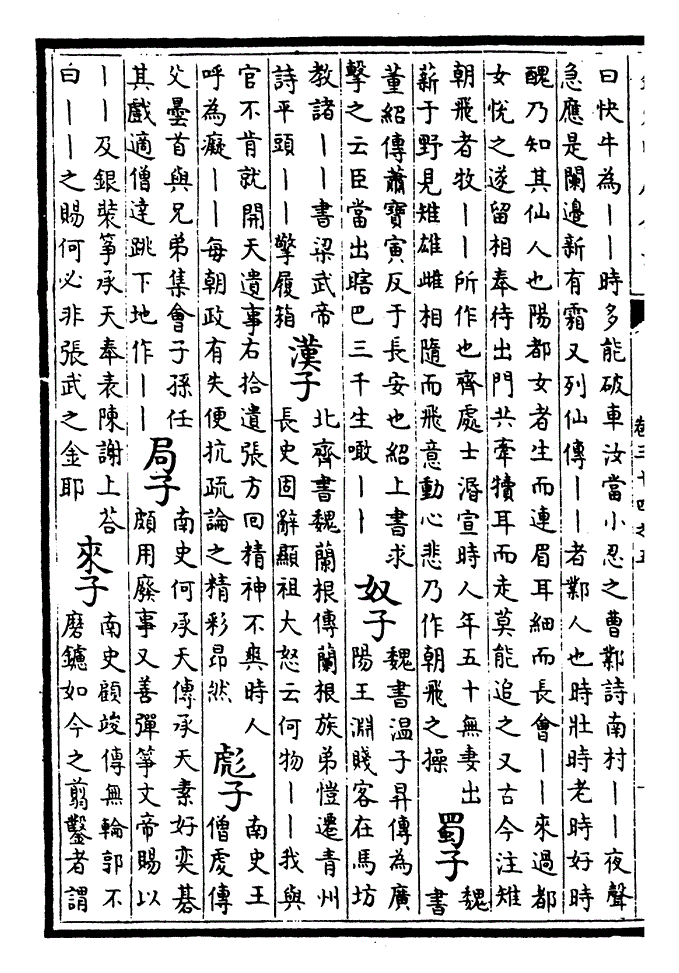 卷三十四之五
曰快牛為丨丨時多能破車汝當小忍之曹鄴詩南村丨丨夜聲
急應是闌邊新有霜又列仙傳丨丨者鄴人也時壯時老時好時
醜乃知其仙人也陽都女者生而連眉耳細而長會丨丨來過都
女悅之遂留相奉待出門共牽犢耳而走莫能追之又古今注雉
朝飛者牧丨丨所作也齊處士湣宣時人年五十無妻出
薪于野見雉雄雌相隨而飛意動心悲乃作朝飛之操
蜀子
魏
書
董紹傳蕭寶寅反于長安也紹上書求
擊之云臣當出瞎巴三千生噉丨丨
奴子
魏書温子昇傳為廣
陽王淵賤客在馬坊
教諸丨丨書梁武帝
詩平頭丨丨擎履箱
漢子
北齊書魏蘭根傳蘭根族弟愷遷青州
長史固辭顯祖大怒云何物丨丨我與
官不肯就開天遺事右拾遺張方回精神不與時人
呼為癡丨丨每朝政有失便抗疏論之精彩昂然
彪子
南史王
僧虔傳
父曇首與兄弟集會子孫任
其戲適僧達跳下地作丨丨
局子
南史何承天傳承天素好奕碁
頗用廢事又善彈箏文帝賜以
丨丨及銀裝箏承天奉表陳謝上荅
曰丨丨之賜何必非張武之金耶
來子
南史顧竣傳無輪郭不
磨鑢如今之翦鑿者謂